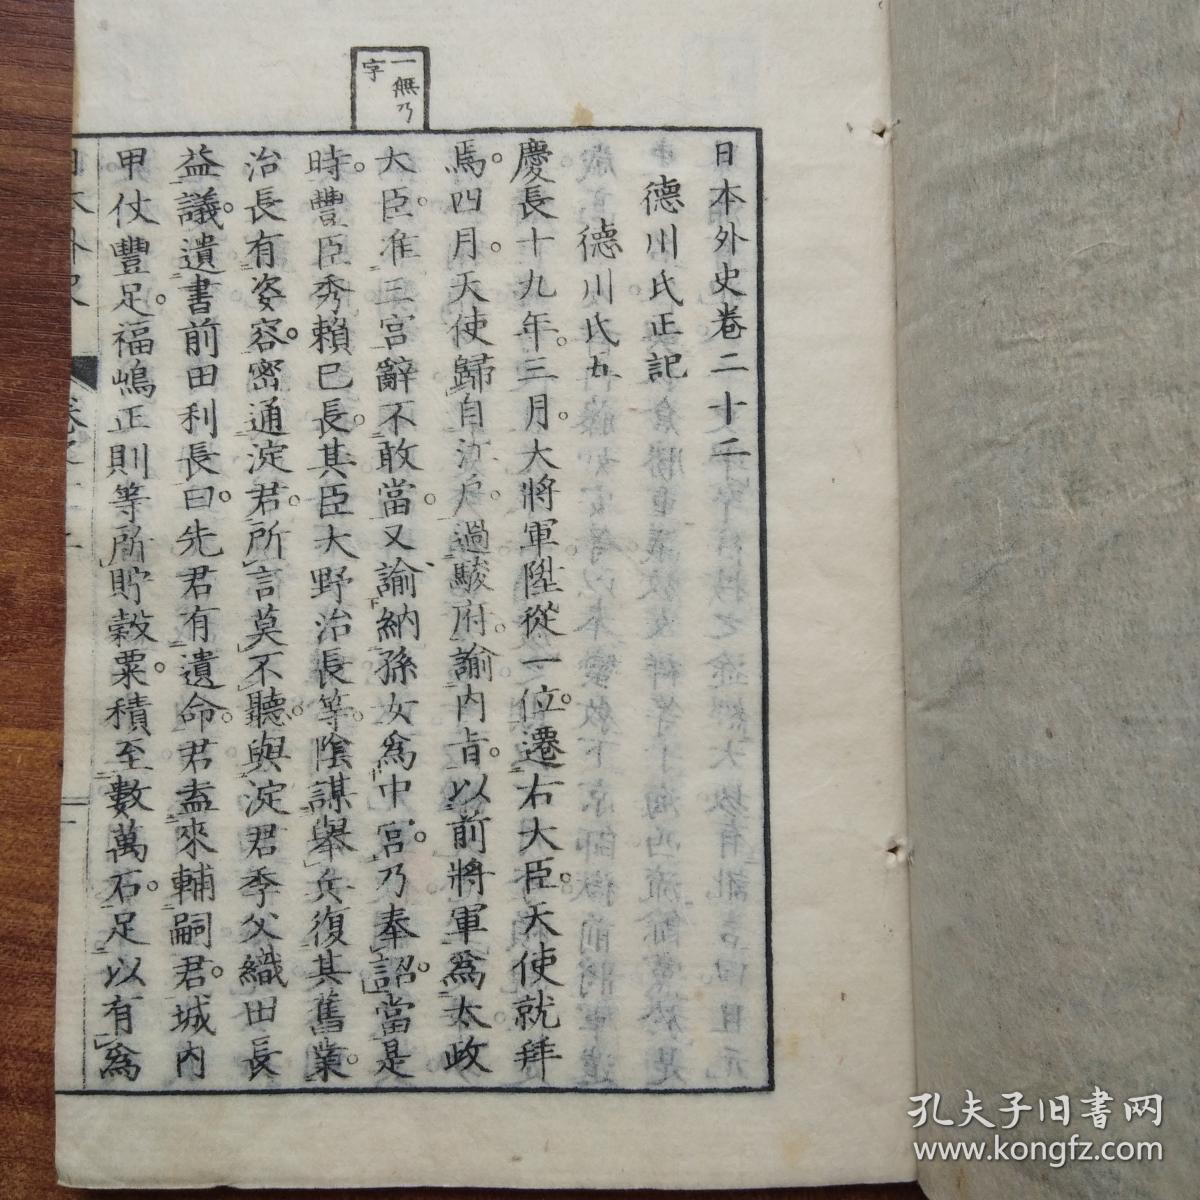 一無乃
字
日本外史卷二十二
德川氏正記
德川氏五
慶長十九年三月大將軍陞從一位遷右大臣天使就拜
焉四月天使歸自江戶過駿府諭內旨以前將軍爲太政
大臣准三宮辭不敢當又諭納孫女爲中宮乃奉詔當是
時豐臣秀賴已長其臣大野治長等陰謀舉兵復其舊業
治長有姿容密通淀君所言莫不聽與淀君季父織田長
益議遺書前田利長曰先君有遺命君盍來輔嗣君城內
甲仗豐足福嶋正則等所貯穀粟積至數萬石足以有爲
日本外史
孔夫子旧书网
www.kongfz.com